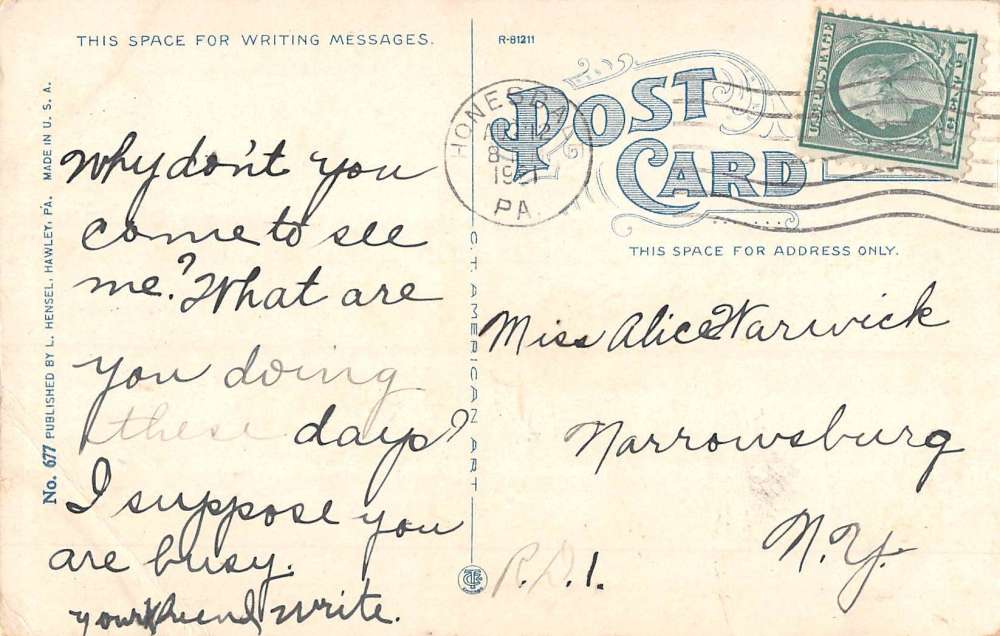 THIS SPACE FOR WRITING MESSAGES.
R-81211
POST
CARD
U.S. POSTAGE
1 CENT 1
HONESDALE
8
PA.
THIS SPACE FOR ADDRESS ONLY.
No. 677 PUBLISHED BY L. HENSEL, HAWLEY, PA. MADE IN U. S. A.
C. T. AMERICAN ART
Why don't you
come to see
me? What are
you doing
these days?
I suppose you
are busy.
your friend write.
Miss Alice Warwick
Narrowsburg
N.Y.
R.D.1.